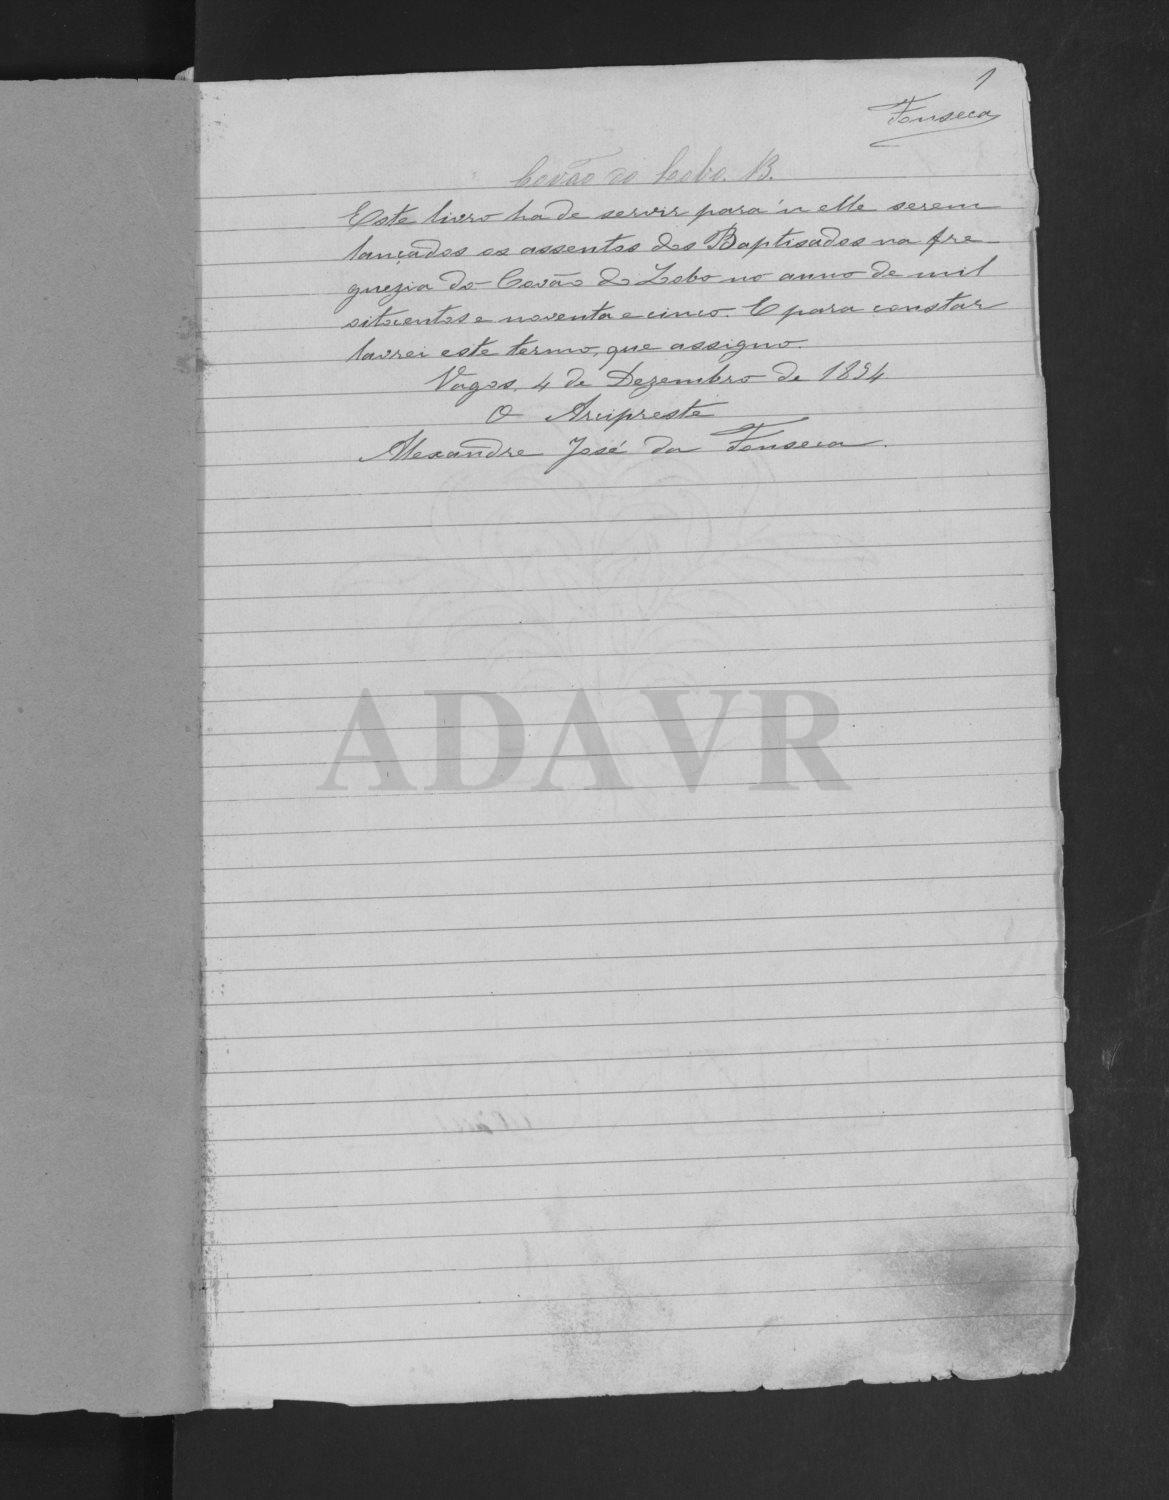 1
Fonseca
Covão do Lobo. B.
Este livro ha de servir para n'elle serem
lançados os assentos dos Baptisados na fre-
guezia do Covão do Lobo no anno de mil
oitocentos e noventa e cinco. E para constar
lavrei este termo, que assigno.
Vagos, 4 de Dezembro de 1894
O Arcipreste
Alexandre José da Fonseca.
ADAVR